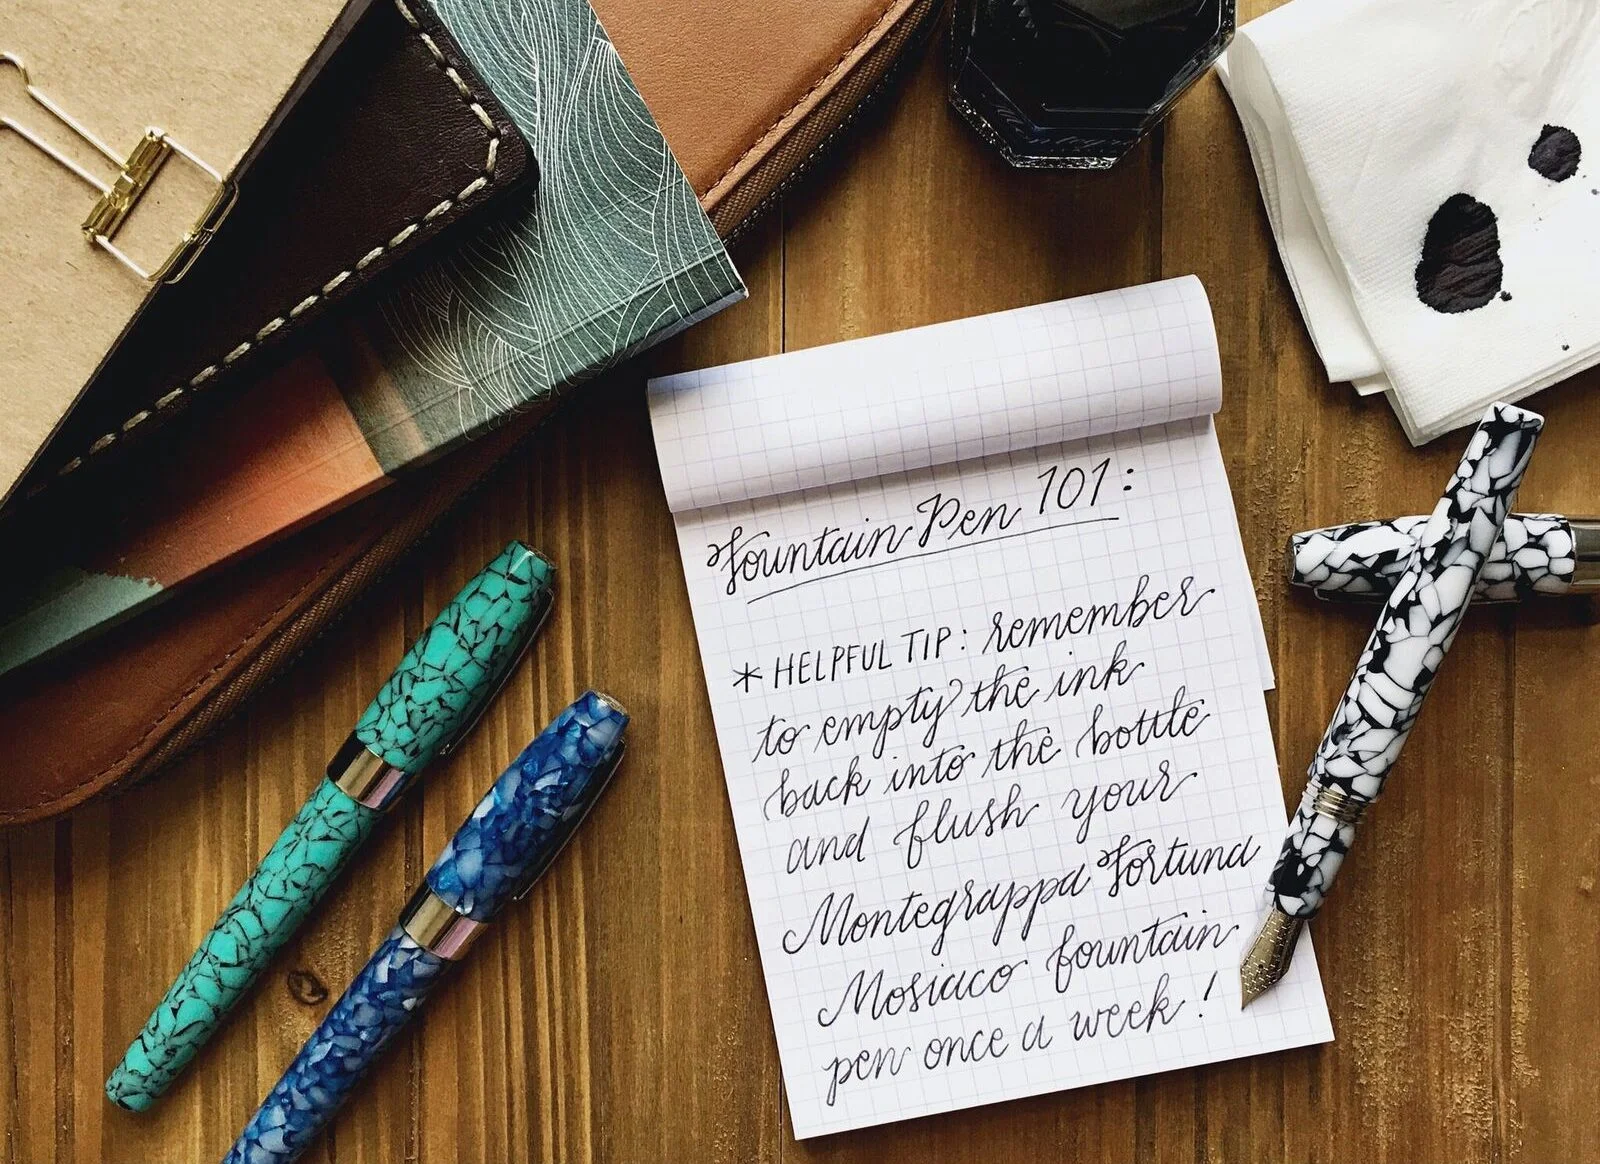 Fountain Pen 101:
* HELPFUL TIP: remember
to empty the ink
back into the bottle
and flush your
Montegrappa Fortuna
Mosiaco fountain
pen once a week!